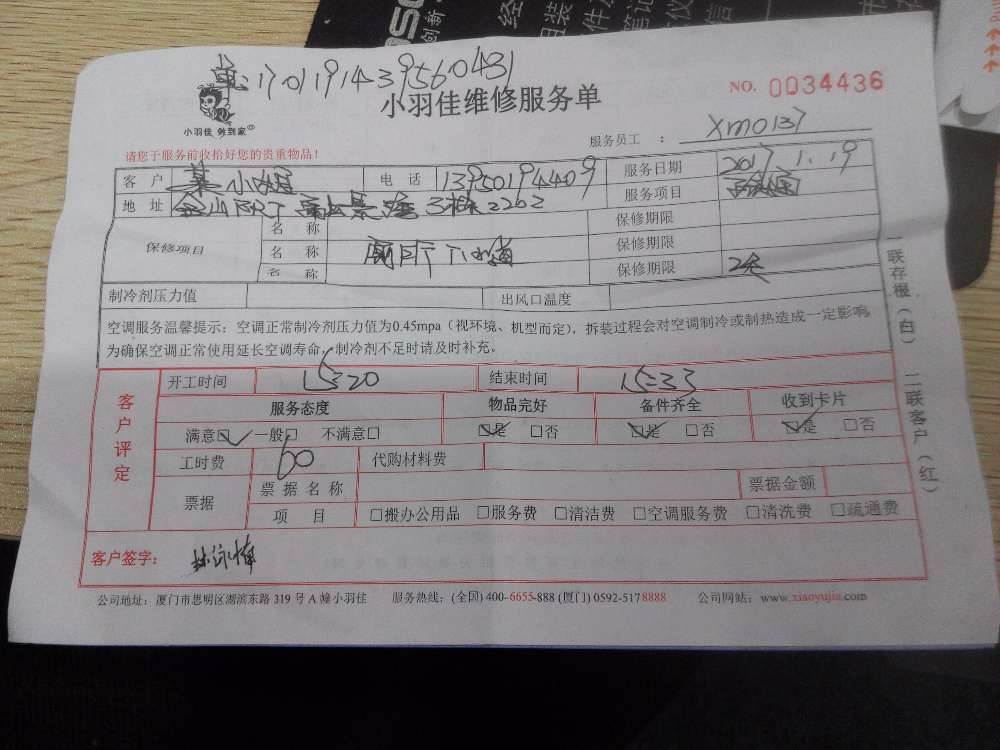 单:1701191439560431
小羽佳 做到家
小羽佳维修服务单
NO. 0034436
服务员工 : xm0137
请您于服务前收拾好您的贵重物品!
客 户 小姐 电 话 13950194409 服务日期 2017.1.19
地 址 3栋2202 服务项目
保修项目 名 称 保修期限
名 称 厕所下水道 保修期限
名 称 保修期限 2天
制冷剂压力值 出风口温度
空调服务温馨提示:空调正常制冷剂压力值为0.45mpa(视环境、机型而定),拆装过程会对空调制冷或制热造成一定影响,
为确保空调正常使用延长空调寿命,制冷剂不足时请及时补充。
客户评定
开工时间 15:20 结束时间 15:33
服务态度 物品完好 备件齐全 收到卡片
满意☑ 一般□ 不满意□ ☑是 □否 ☑是 □否 ☑是 □否
工时费 60 代购材料费
票据 票 据 名 称 票据金额
项 目 □搬办公用品 □服务费 □清洁费 □空调服务费 □清洗费 □疏通费
客户签字:
公司地址:厦门市思明区湖滨东路 319 号 A 幢小羽佳 服务热线:(全国) 400-6655-888 (厦门) 0592-5178888 公司网站:www.xiaoyujia.com
一联存根(白) 二联客户(红)